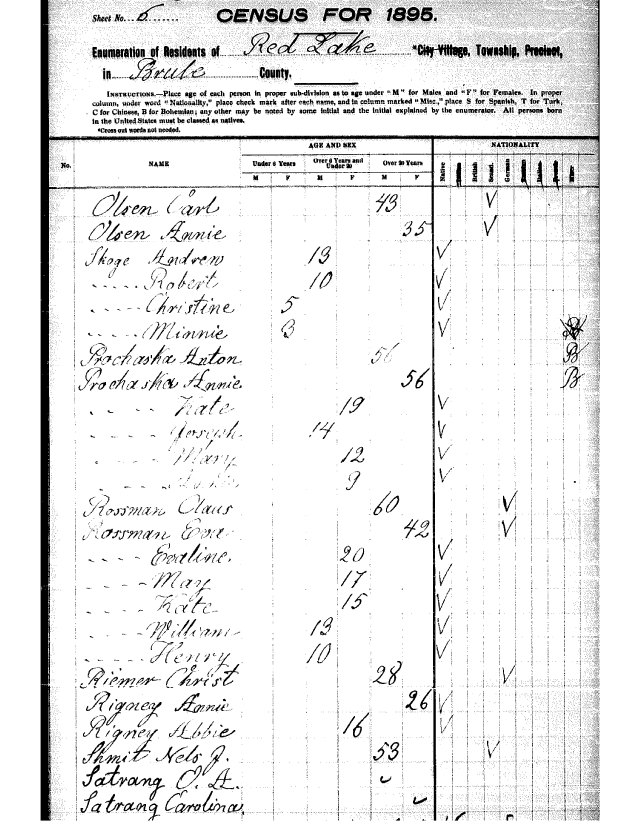 Sheet No. 6
CENSUS FOR 1895.
Enumeration of Residents of Red Lake *City Village, Township, Precinct,
in Brule County.
INSTRUCTIONS.—Place age of each person in proper sub-division as to age under "M" for Males and "F" for Females. In proper
column, under word "Nationality," place check mark after each name, and in column marked "Misc., place S for Spanish, T for Turk,
C for Chinese, B for Bohemian; any other may be noted by some initial and the initial explained by the enumerator. All persons born
in the United States must be classed as natives.
*Cross out words not needed.
AGE AND SEX NATIONALITY
No. NAME Under 6 Years Over 6 Years and Under 20 Over 20 Years Native British Scand. German
M F M F M F
Olsen Carl 43 √
Olsen Annie 35 √
Skoge Andrew 13 √
..... Robert 10 √
..... Christine 5 √
..... Minnie 3 √
Prochaska Anton 56 B
Prochaska Annie 56 B
.... Kate 19 √
.... Joseph 14 √
.... Mary 12 √
.... 9 √
Rossman Claus 60 √
Rossman Eva 42 √
.... Evaline. 20 √
.... May 17 √
.... Kate 15 √
.... William 13 √
..... Henry 10 √
Riemer Christ 28 √
Rigney Annie 26 √
Rigney Abbie 16 √
Shmit Nels J. 53 √
Satrang O. A. ᴗ
Satrang Carolina ᴗ